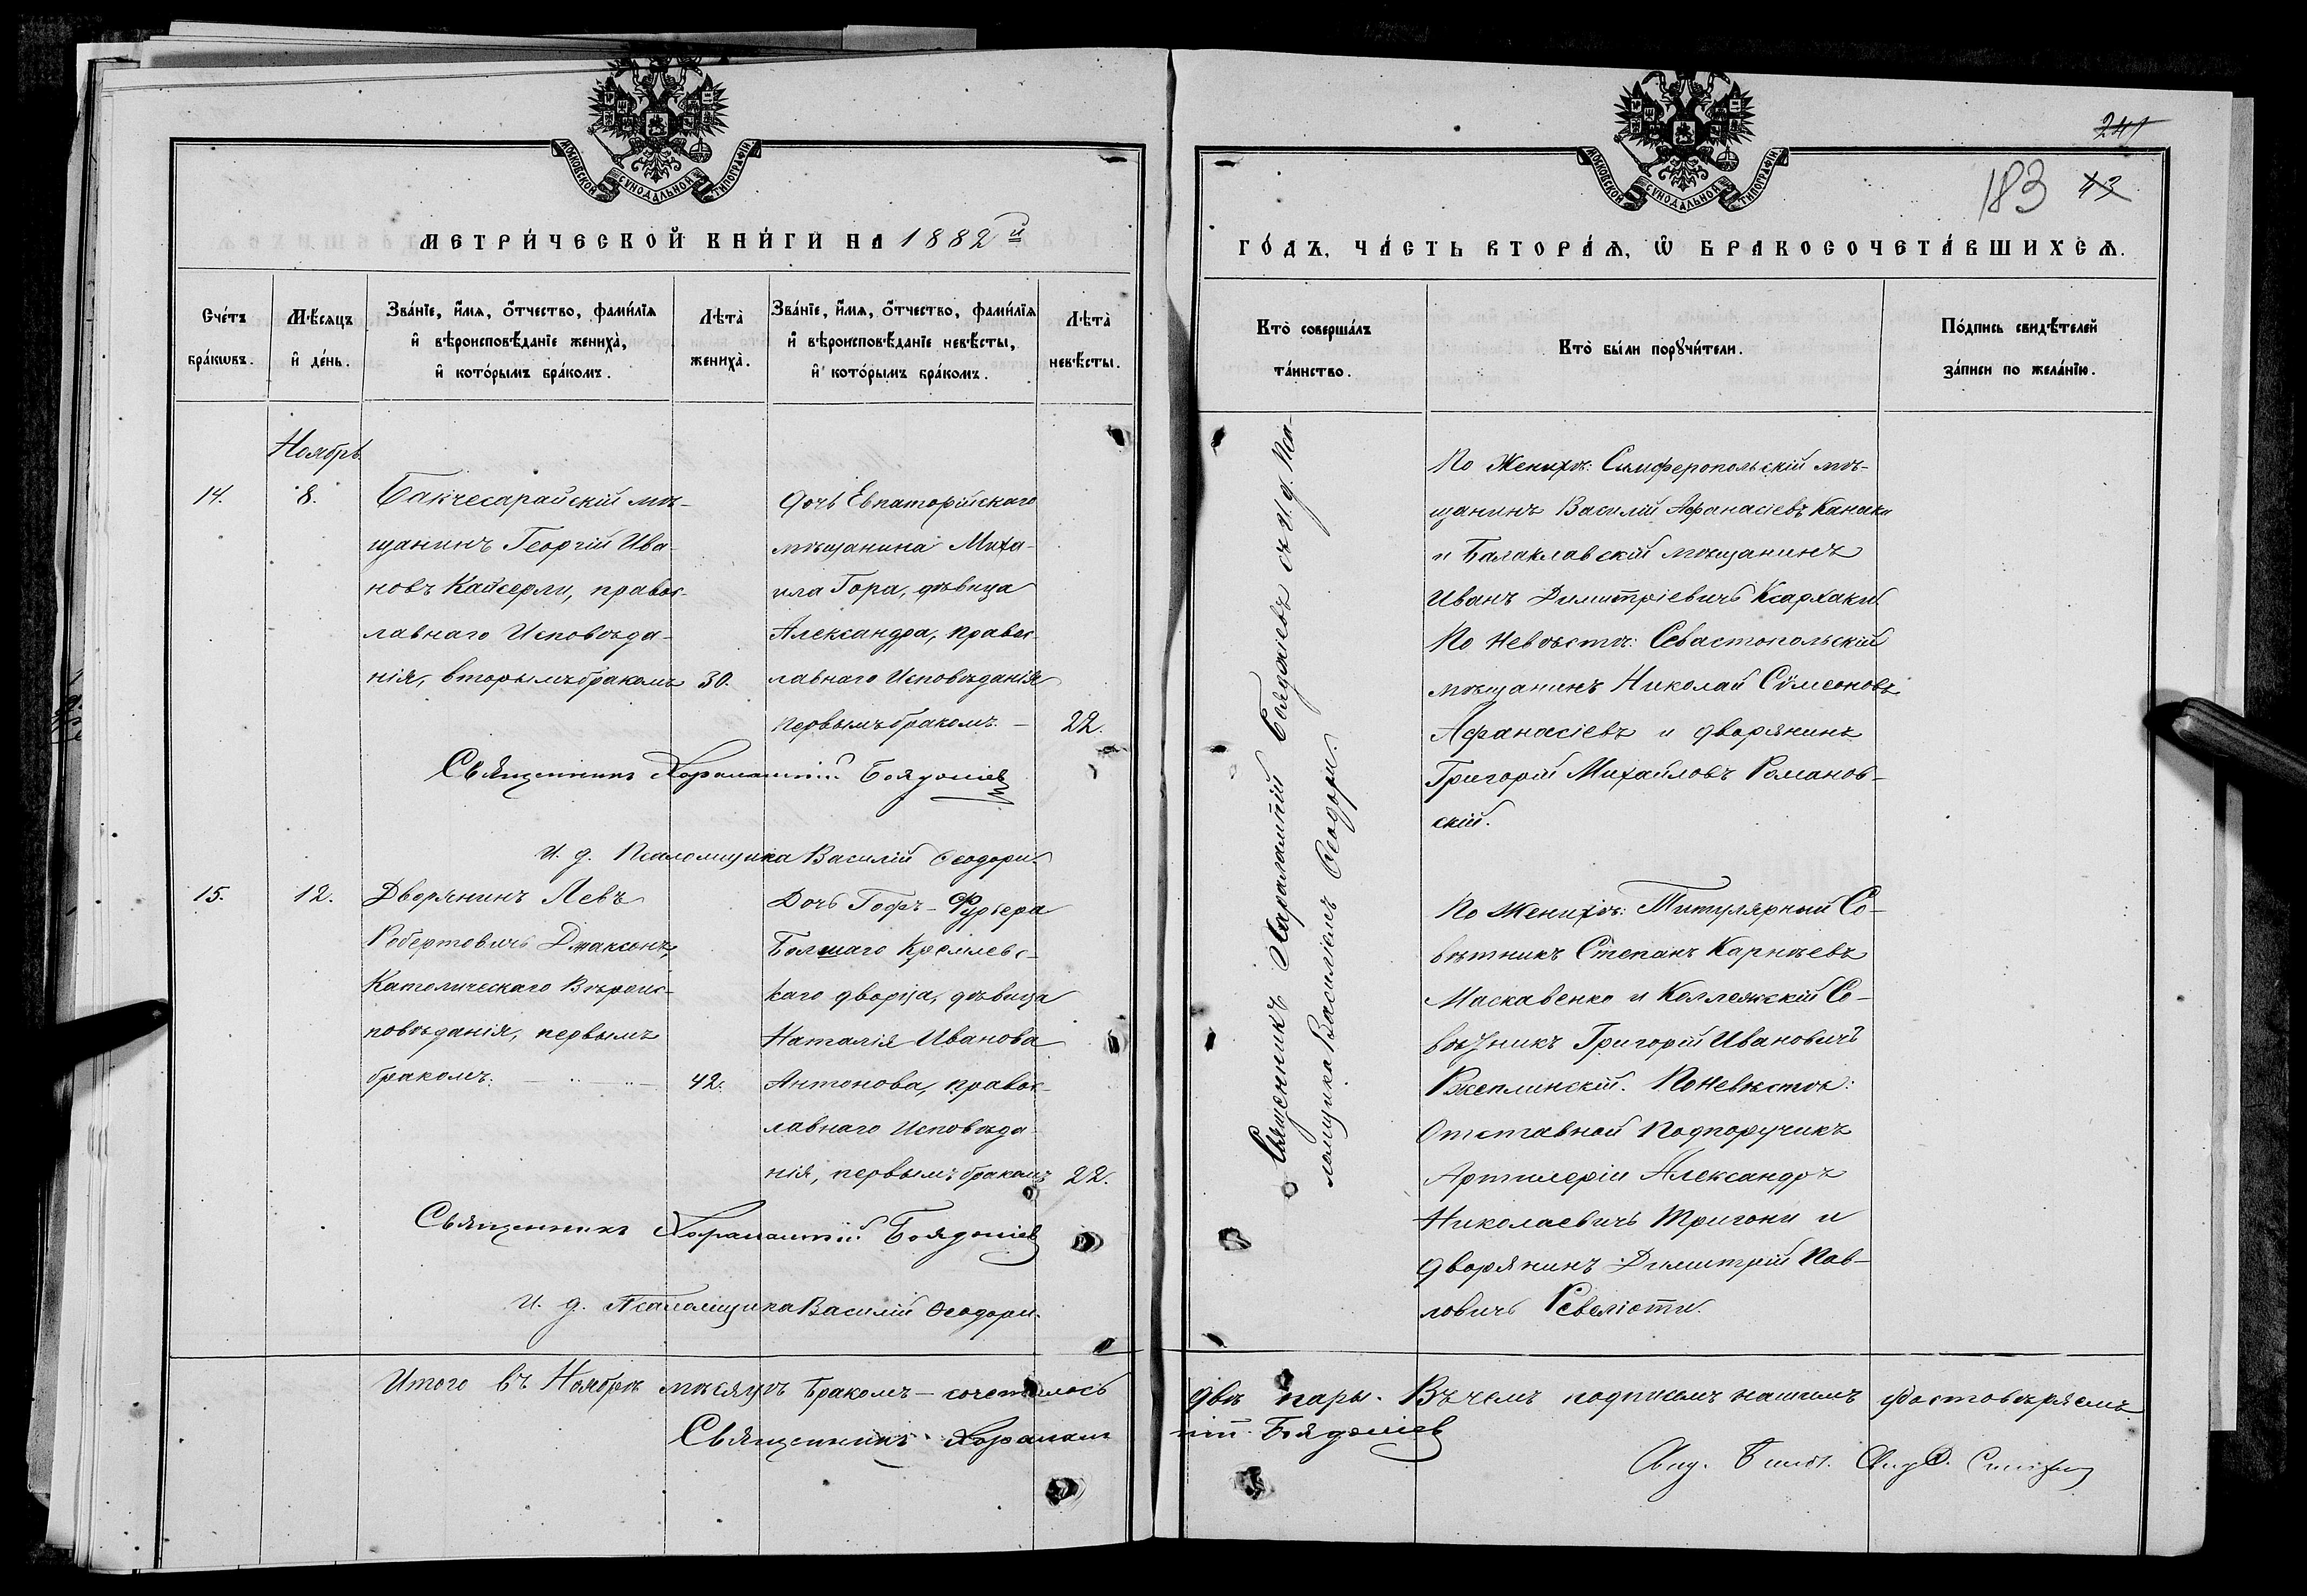 МОСКОВСКОЙ СѴНОДАЛЬНОЙ ТИПОГРАФІИ
МЕТРИ́ЧЕСКОЙ КНИ́ГИ НА 1882й
Сче́тъ бра́кѡвъ.
Мѣ́сяцъ и҆ де́нь.
Зва́нїе, и҆́мѧ, ѻ҆́тчество, фами́лїѧ
и҆ вѣроисповѣ́данїе жениха̀,
и҆ кото́рымъ бра́комъ.
Лѣта̀ жениха̀.
Зва́нїе, и҆́мѧ, ѻ҆́тчество, фами́лїѧ
и҆ вѣроисповѣ́данїе невѣ́сты,
и҆ кото́рымъ бра́комъ.
Лѣта̀ невѣ́сты.
Ноябрь
14.
8.
Бакчесарайскій мѣ-
щанинъ Георгій Ива-
новъ Кайсерли, правос-
лавнаго Исповѣда-
нія, вторымъ бракомъ
30.
Дочь Евпаторійскаго
мѣщанина Миха-
ила Гора, дѣвица
Александра, правос-
лавнаго Исповѣданія
первымъ бракомъ. —
22.
Священникъ Харалампій Боядоліевъ
И. д. Псаломщика Василій Ѳеодори.
15.
12.
Дворянинъ Левъ
Робертовичъ Джаксонъ,
Католическаго Вѣроис-
повѣданія, первымъ
бракомъ.
42.
Дочь Гофъ-Фурьера
Болшаго Кремлевс-
каго дворца, дѣвица
Наталія Иванова
Антонова, правос-
лавнаго Исповѣда-
нія, первымъ бракомъ
22.
Священникъ Харалампій Боядоліевъ
И. д. Псаломщика Василій Ѳеодори.
Итого въ Ноябрѣ мѣсяцѣ бракомъ сочеталось
Священникъ Харалам
241
183 43
МОСКОВСКОЙ СѴНОДАЛЬНОЙ ТИПОГРАФІИ
ГО́ДЪ, ЧА́СТЬ ВТОРА́Ѧ, Ѽ БРАКОСОЧЕТА́ВШИХСѦ.
Кто̀ соверша́лъ
та́инство.
Кто̀ бы́ли порꙋчи́тели.
По́дпись свидѣ́телей
за́писи по жела́нїю.
Священникъ Харалампій Боядоліевъ съ И. д. Пса-
ломщика Василіемъ Ѳеодори.
По Женихѣ: Симферопольскій мѣ-
щанинъ Василій Афанасіевъ Канаки
и Балаклавскій мѣщанинъ
Иванъ Димитріевичъ Ксархаки.
По Невѣстѣ: Севастопольскій
мѣщанинъ Николай Сѵмеоновъ
Афанасіевъ и дворянинъ
Григорій Михайловъ Романов-
скій.
По Женихѣ: Титулярный Со-
вѣтникъ Степанъ Карнѣевъ
Маскавенко и Коллежскій Со-
вѣтникъ Григорій Ивановичъ
Ржеплинскій. По Невѣстѣ:
Отставной Подпоручикъ
Артилеріи Александръ
Николаевичъ Тригони и
дворянинъ Димитрій Пав-
ловичъ Ревеліоти.
двѣ пары. Въ чемъ подписомъ нашимъ удостовѣряемъ
пій Боядоліевъ